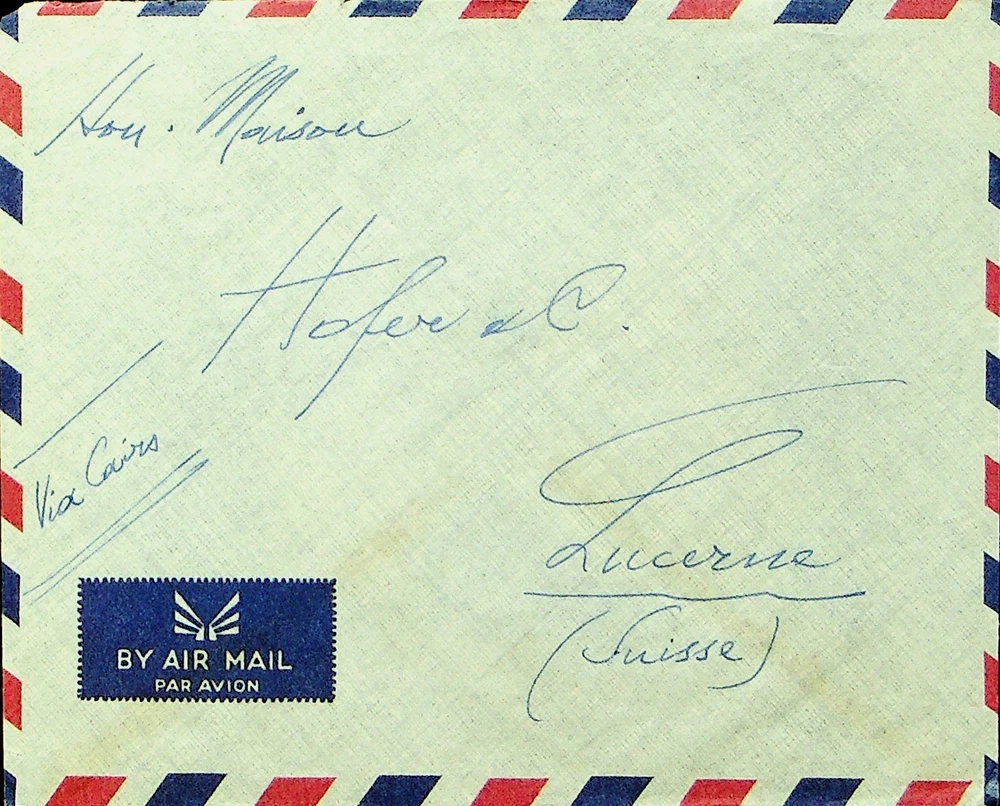 Hon. Maison
Hofer & C.
Via Cairo
Lucerne
(Suisse)
BY AIR MAIL
PAR AVION